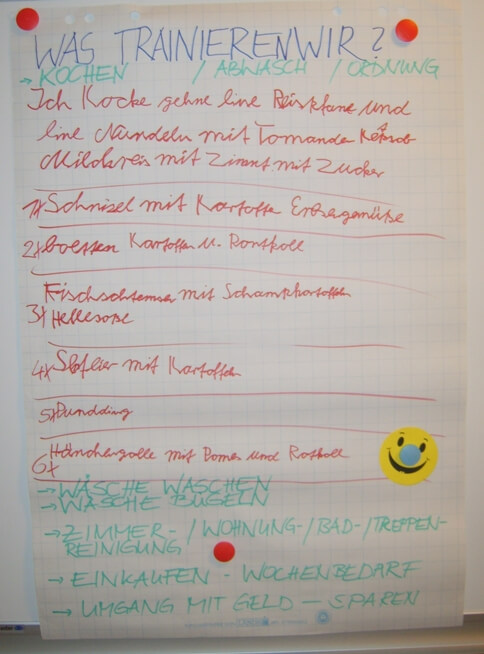 WAS TRAINIEREN WIR?
→ KOCHEN / ABWASCH / ORDNUNG
Ich Kocke gehne eine Reiskfane und
eine Nundeln mit Tomande
Mildkreis mit Zimt mit Zucker
1x Schnisel mit Kartoffe Erbsegemüße
2x boessen Kartoffen u. Rontkoll
Fischschtemmer mit Schampkartoffeln
3x Hellesoße
4x mit Kartoffeln
5x Pundding
6x Hänchengolle mit Pomes und Rotkoll
→ WÄSCHE WASCHEN
→ WÄSCHE BÜGELN
→ ZIMMER- / WOHNUNG- / BAD- / TREPPEN-
REINIGUNG
→ EINKAUFEN - WOCHENBEDARF
→ UMGANG MIT GELD – SPAREN